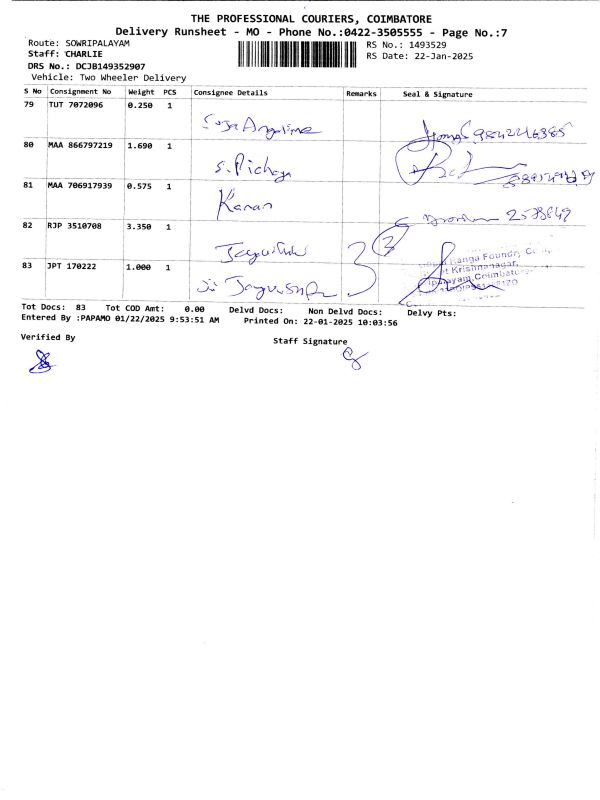 THE PROFESSIONAL COURIERS, COIMBATORE
Delivery Runsheet - MO - Phone No.:0422-3505555 - Page No.:7
Route: SOWRIPALAYAM RS No.: 1493529
Staff: CHARLIE RS Date: 22-Jan-2025
DRS No.: DCJB149352907
Vehicle: Two Wheeler Delivery
S No Consignment No Weight PCS Consignee Details Remarks Seal & Signature
79 TUT 7072096 0.250 1
80 MAA 866797219 1.690 1
S. Pichaya
81 MAA 706917939 0.575 1
Kanan
82 RJP 3510708 3.350 1
83 JPT 170222 1.000 1
Ranga Foundr
Krishnanagar,
Coimbatore
Tot Docs: 83 Tot COD Amt: 0.00 Delvd Docs: Non Delvd Docs: Delvy Pts:
Entered By :PAPAMO 01/22/2025 9:53:51 AM Printed On: 22-01-2025 10:03:56
Verified By Staff Signature